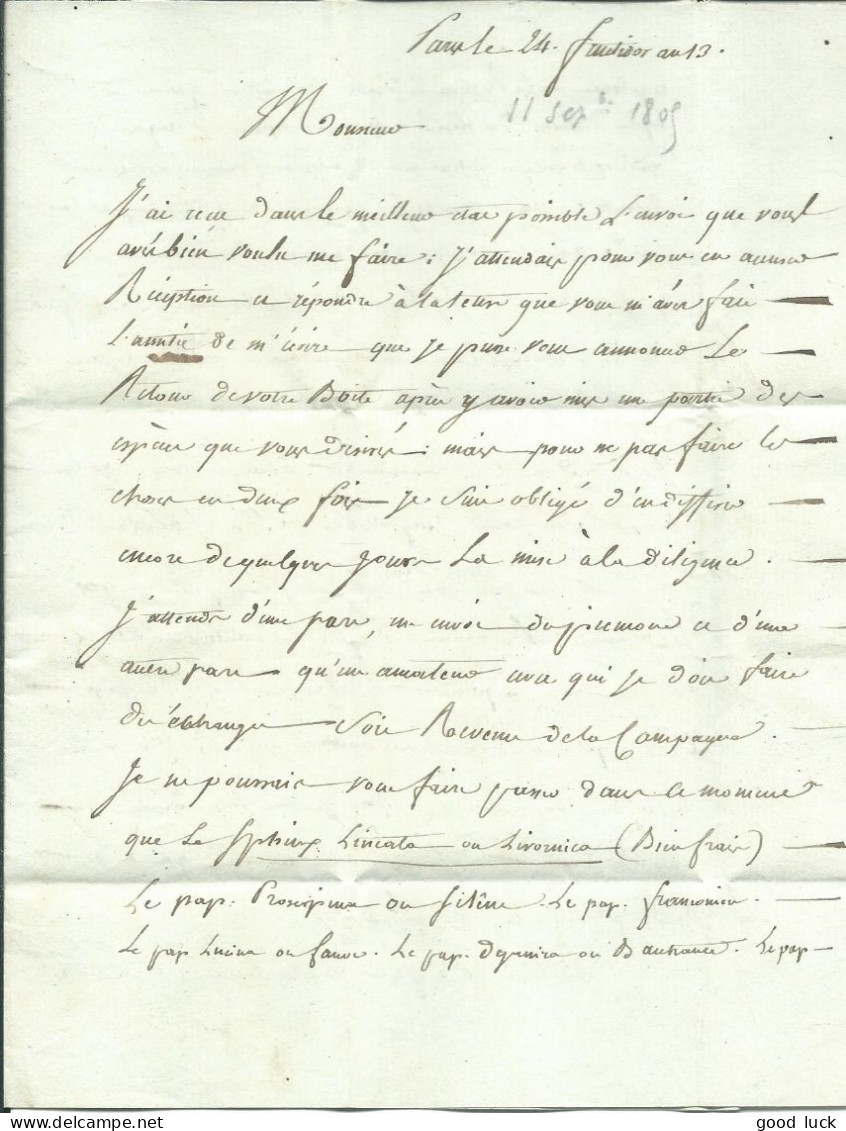 Paris le 24. fructidor an 13.
11 Sep.bre 1805
Monsieur
J'ai recu dans le meilleur état possible L'envoi que vous
avés bien voulu me faire : J'attendais pour vous en annoncer
Réception et répondre à la lettre que vous m'avés fait
L'amitié de m'écrire que je puisse vous annoncer Le
Retour de votre Boite après y avoir mis une partie des
espèces que vous desirés : mais pour ne pas faire les
choses en deux fois je suis obligé d'en differer
encore de quelques jours La mise à la diligence.
J'attends d'une part, un envoi du piemont et d'une
autre part qu'un amateur avec qui je dois faire
des échanges soit Revenu de la Campagne.
Je ne pourrais vous faire passer dans ce moment
que Le Sphinx Lineata ou Livornica (Bien frais)
Le pap. Proserpina ou Silène. Le pap. franconien.
Le pap Lucina ou faune. Le pap. ou . Le pap
good luck